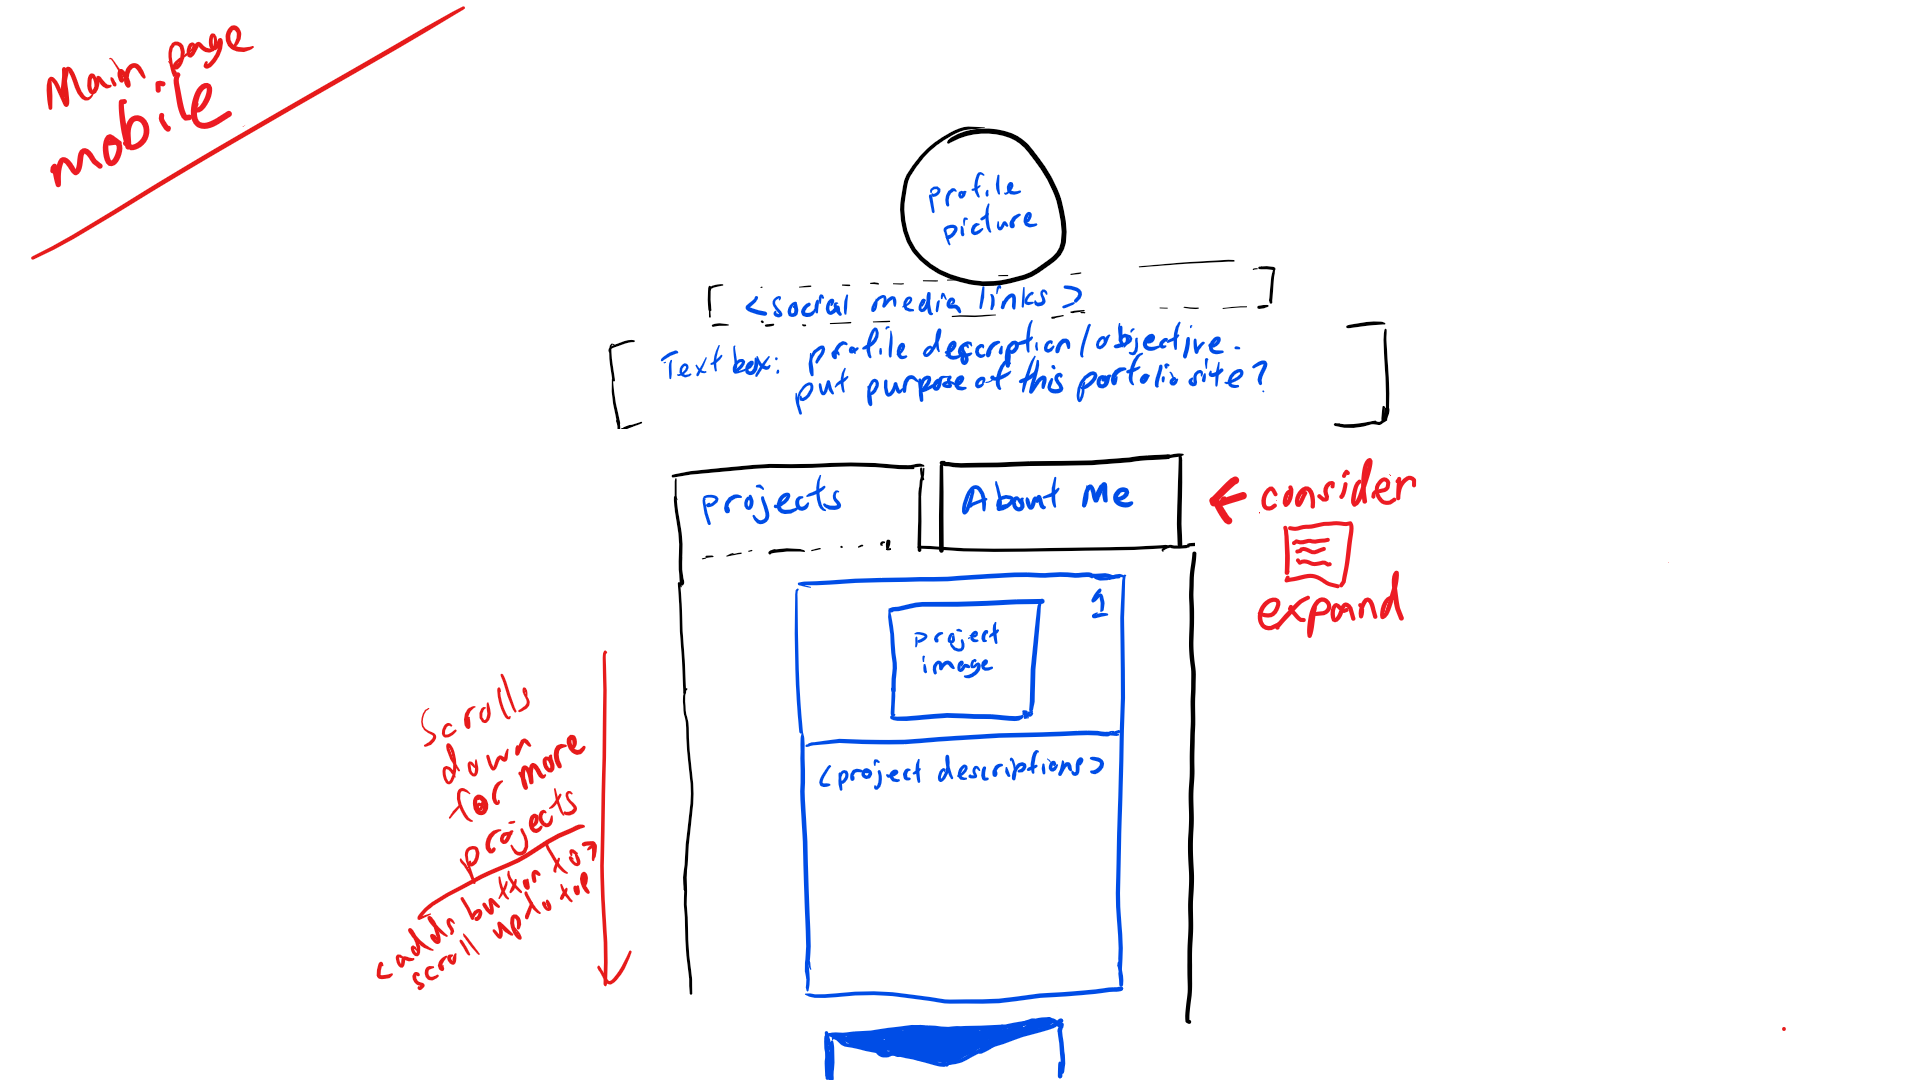 Main page
mobile
profile
picture
<social media links>
Text box: profile description/objective.
put purpose of this portfolio site?
projects
About Me
← consider
expand
1
project
image
<project descriptions>
Scrolls
down
for more
projects
<adds button to>
scroll up to top